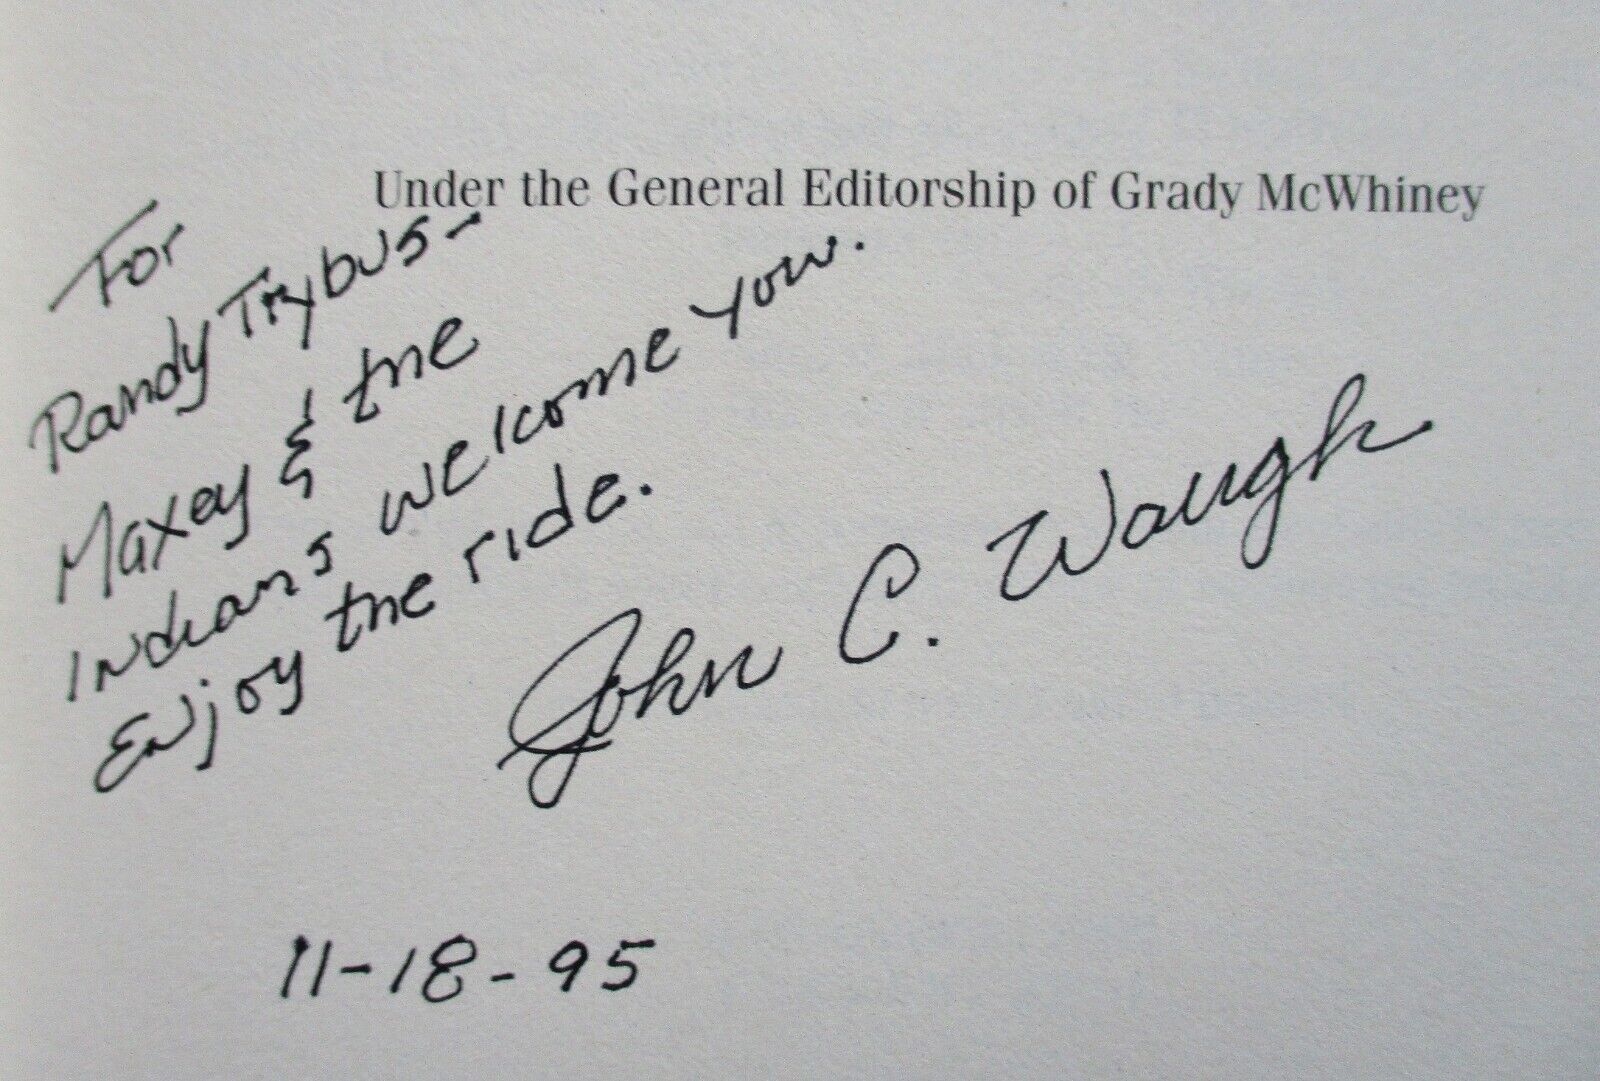 Under the General Editorship of Grady McWhiney
For
Randy Trybus-
Maxey & the
Indians welcome you.
Enjoy the ride.
John C. Waugh
11-18-95